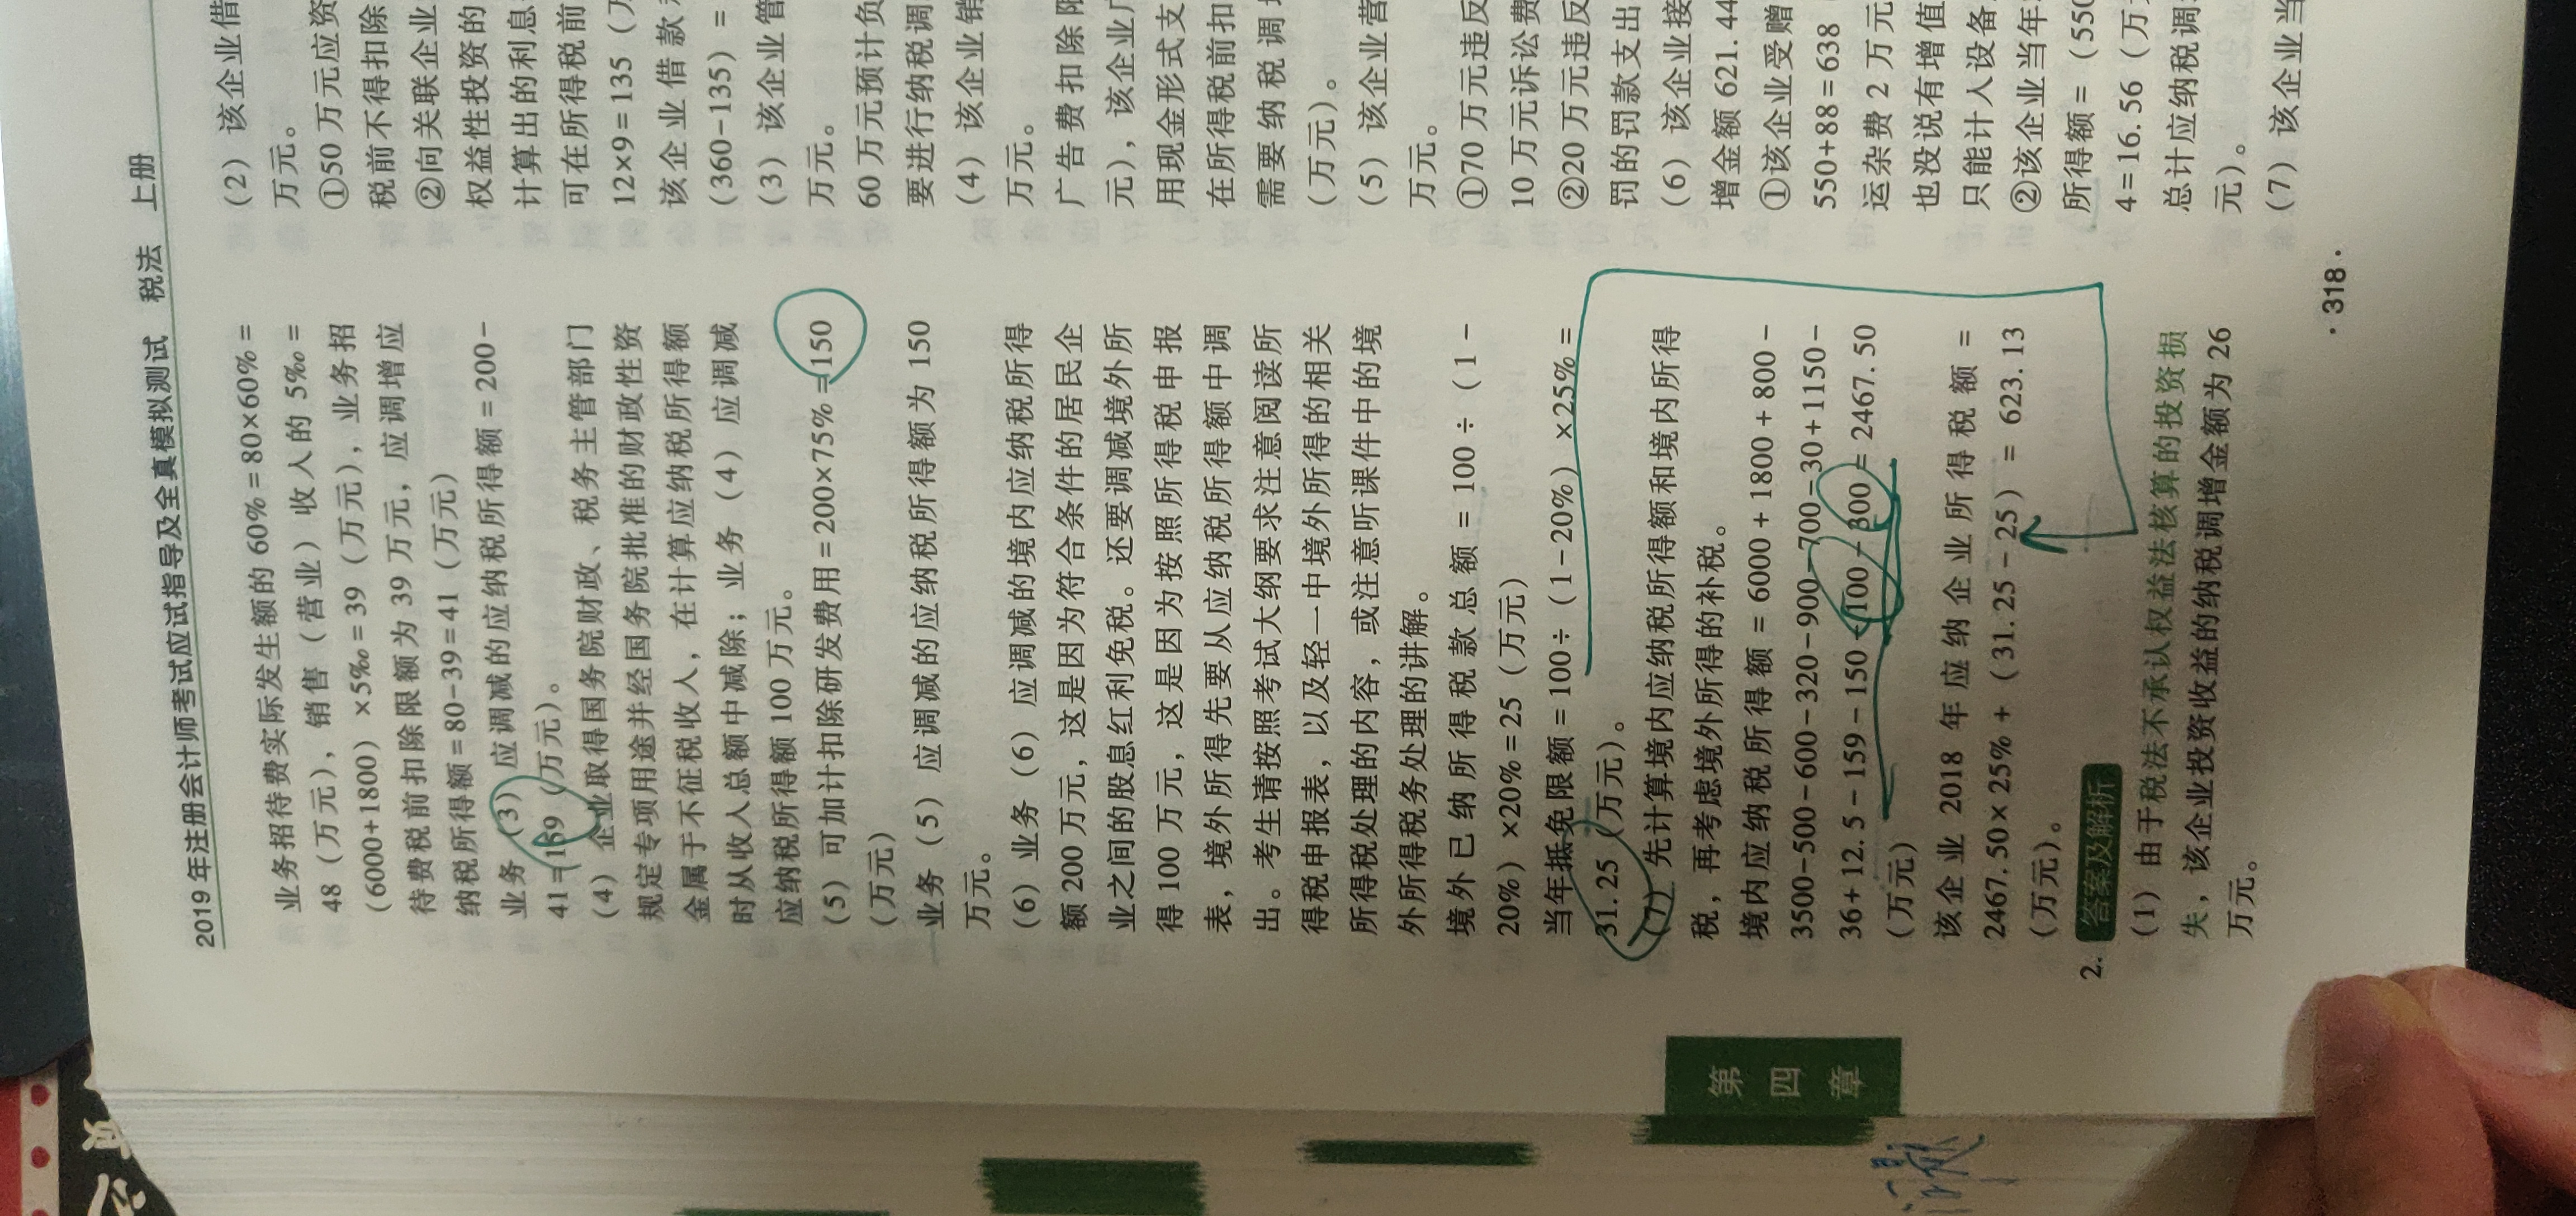 2019年注册会计师考试应试指导及全真模拟测试 税法 上册
业务招待费实际发生额的 60%=80×60%=
48（万元），销售（营业）收入的 5‰=
（6000+1800）×5‰=39（万元），业务招
待费税前扣除限额为 39 万元，应调增应
纳税所得额=80-39=41（万元）
业务（3）应调减的应纳税所得额=200-
41=159（万元）。
（4）企业取得国务院财政、税务主管部门
规定专项用途并经国务院批准的财政性资
金属于不征税收入，在计算应纳税所得额
时从收入总额中减除；业务（4）应调减
应纳税所得额 100 万元。
（5）可加计扣除研发费用=200×75%=150
（万元）
业务（5）应调减的应纳税所得额为 150
万元。
（6）业务（6）应调减的境内应纳税所得
额 200 万元，这是因为符合条件的居民企
业之间的股息红利免税。还要调减境外所
得 100 万元，这是因为按照所得税申报
表，境外所得先要从应纳税所得额中调
出。考生请按照考试大纲要求注意阅读所
得税申报表，以及轻一中境外所得的相关
所得税处理的内容，或注意听课件中的境
外所得税务处理的讲解。
境外已纳所得税款总额=100÷（1-
20%）×20%=25（万元）
当年抵免限额=100÷（1-20%）×25%=
31.25（万元）。
（7）先计算境内应纳税所得额和境内所得
税，再考虑境外所得的补税。
境内应纳税所得额=6000+1800+800-
3500-500-600-320-900-700-30+1150-
36+12.5-159-150-100-300=2467.50
（万元）
该企业 2018 年应纳企业所得税额=
2467.50×25%+（31.25-25）=623.13
（万元）。
2. 答案及解析
（1）由于税法不承认权益法核算的投资损
失，该企业投资收益的纳税调增金额为 26
万元。
（2）该企业借
万元。
①50 万元应资
税前不得扣除
②向关联企业
权益性投资的
计算出的利息
可在所得税前
12×9=135（万
该企业借款
（360-135）=
（3）该企业管
万元。
60 万元预计负
要进行纳税调
（4）该企业销
万元。
广告费扣除限
元），该企业广
用现金形式支
在所得税前扣
需要纳税调增
（万元）。
（5）该企业营
万元。
①70 万元违反
10 万元诉讼费
②20 万元违反
罚的罚款支出
（6）该企业接
增金额 621.44
①该企业受赠
550+88=638
运杂费 2 万元
也没说有增值
只能计入设备
②该企业当年
所得额=（550
4=16.56（万
总计应纳税调
元）。
（7）该企业当
·318·
第四章